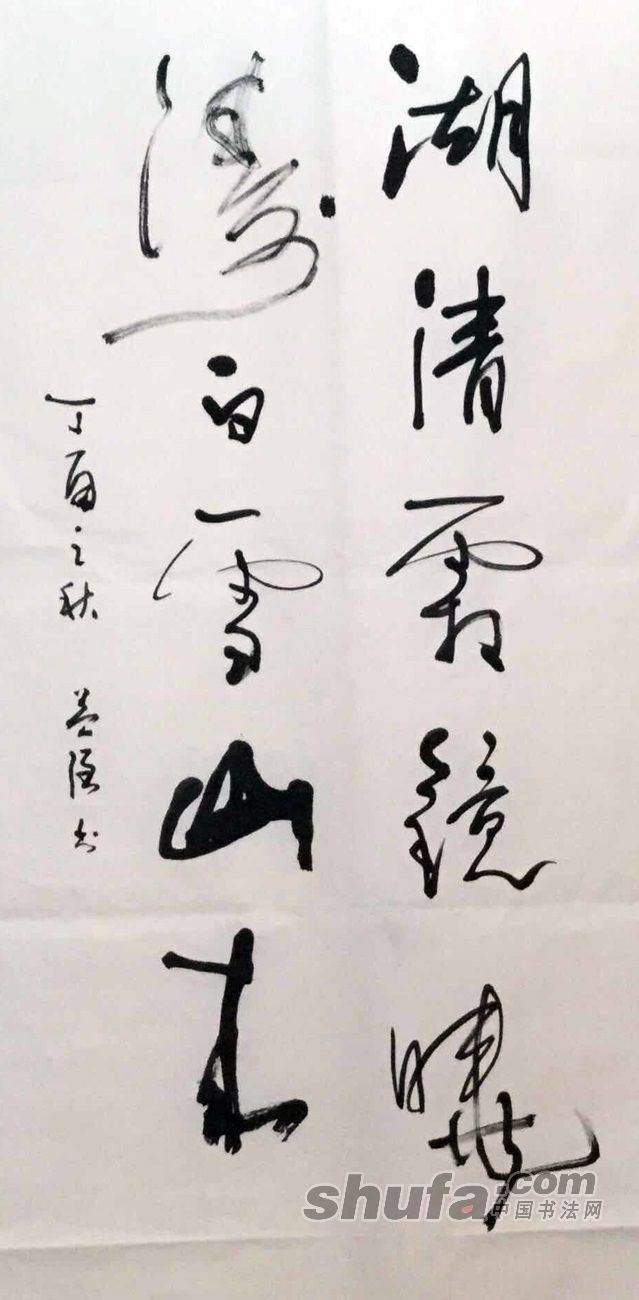 湖清霜鏡曉
濤白雪山来
丁酉之秋 书
shufa.com
中国书法网